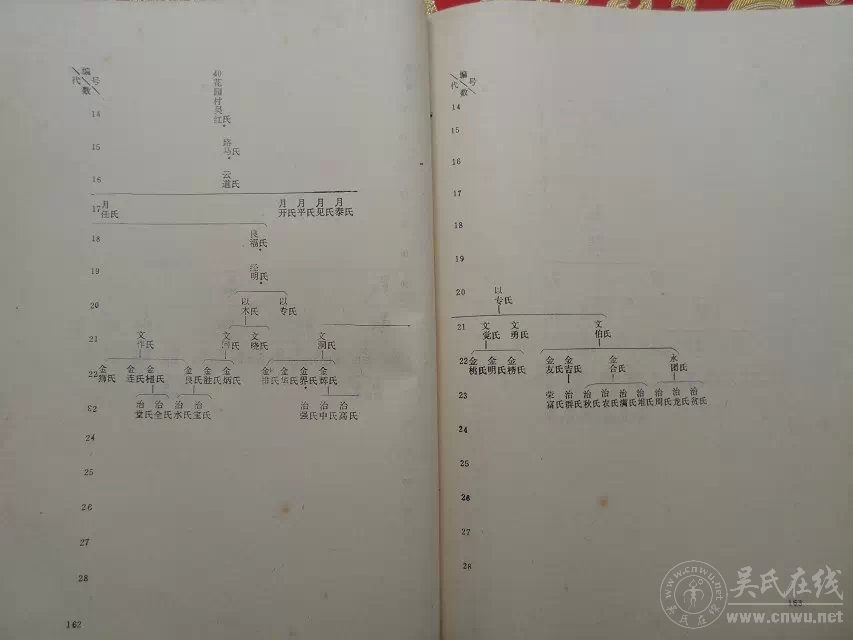 编号
代数
40花园村吴红氏
14
15
路马氏
16
云道氏
17
月任氏
月开氏
月平氏
月见氏
月泰氏
18
良福氏
19
经明氏
20
以木氏
以专氏
21
文作氏
文氏
文晓氏
文洞氏
22
金狮氏
金连氏
金氏
金良氏
金胜氏
金炳氏
金氏
金氏
金界氏
金辉氏
23
治堂氏
治全氏
治水氏
治宝氏
治强氏
治中氏
治高氏
24
25
26
27
28
162
编号
代数
14
15
16
17
18
19
20
以专氏
21
文觉氏
文勇氏
文伯氏
22
金桃氏
金明氏
金榜氏
金友氏
金吉氏
金合氏
水团氏
23
荣富氏
治群氏
治秋氏
治农氏
治满氏
治堆氏
治周氏
治龙氏
治贫氏
24
25
26
27
28
163
吴氏在线
www.cnwu.net